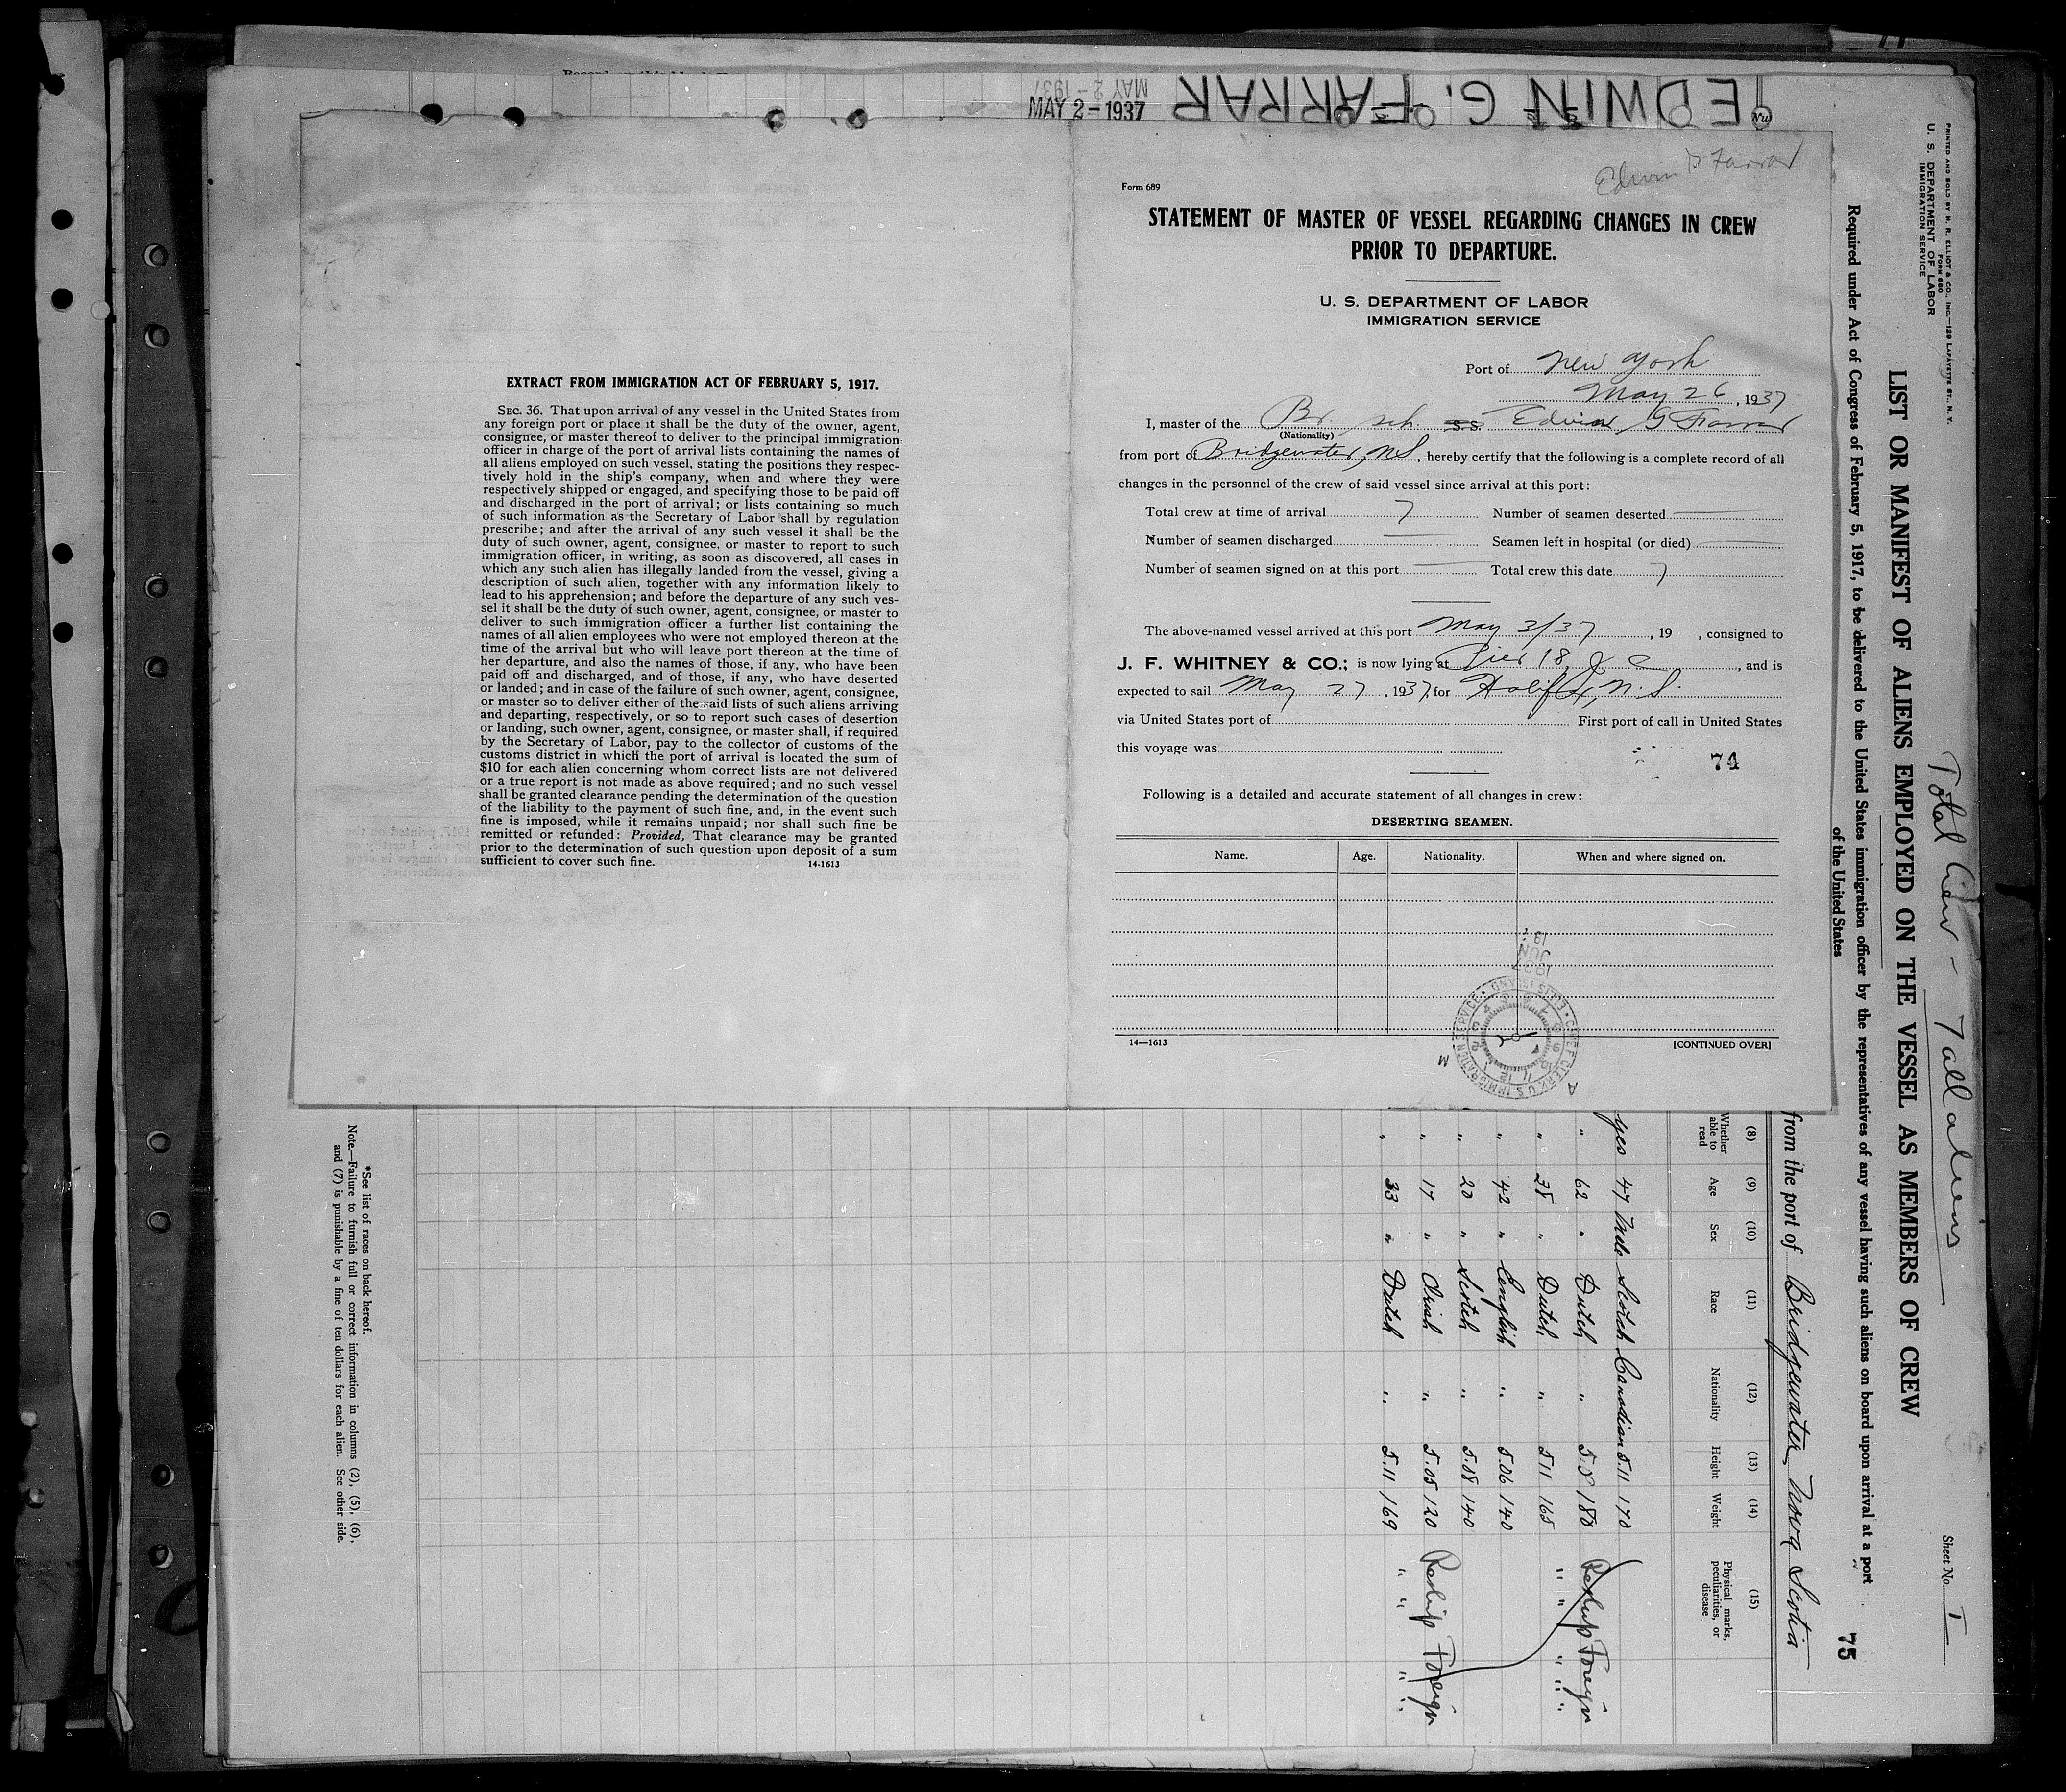 MAY 2-1937
MAY 2-1937
EDWIN G. FARRAR
Edwin G Farrar
Form 689
STATEMENT OF MASTER OF VESSEL REGARDING CHANGES IN CREW
PRIOR TO DEPARTURE.
U. S. DEPARTMENT OF LABOR
IMMIGRATION SERVICE
Port of New York
May 26, 1937
I, master of the Br sch. S.S. Edwin G Farrar
(Nationality)
from port of Bridgewater, N.S., hereby certify that the following is a complete record of all
changes in the personnel of the crew of said vessel since arrival at this port:
Total crew at time of arrival 7 Number of seamen deserted —
Number of seamen discharged — Seamen left in hospital (or died) —
Number of seamen signed on at this port — Total crew this date 7
The above-named vessel arrived at this port May 3/37, 19 , consigned to
J. F. WHITNEY & CO.; is now lying at Pier 18, J C, and is
expected to sail May 27, 1937, for Halifax, N.S.
via United States port of First port of call in United States
this voyage was
74
Following is a detailed and accurate statement of all changes in crew:
DESERTING SEAMEN.
Name. Age. Nationality. When and where signed on.
14—1613 [CONTINUED OVER]
1937
JUN
CHIEF CLERK U.S. IMMIGRATION SERVICE • ELLIS ISLAND •
A M
EXTRACT FROM IMMIGRATION ACT OF FEBRUARY 5, 1917.
SEC. 36. That upon arrival of any vessel in the United States from
any foreign port or place it shall be the duty of the owner, agent,
consignee, or master thereof to deliver to the principal immigration
officer in charge of the port of arrival lists containing the names of
all aliens employed on such vessel, stating the positions they respec-
tively hold in the ship's company, when and where they were
respectively shipped or engaged, and specifying those to be paid off
and discharged in the port of arrival; or lists containing so much
of such information as the Secretary of Labor shall by regulation
prescribe; and after the arrival of any such vessel it shall be the
duty of such owner, agent, consignee, or master to report to such
immigration officer, in writing, as soon as discovered, all cases in
which any such alien has illegally landed from the vessel, giving a
description of such alien, together with any information likely to
lead to his apprehension; and before the departure of any such ves-
sel it shall be the duty of such owner, agent, consignee, or master to
deliver to such immigration officer a further list containing the
names of all alien employees who were not employed thereon at the
time of the arrival but who will leave port thereon at the time of
her departure, and also the names of those, if any, who have been
paid off and discharged, and of those, if any, who have deserted
or landed; and in case of the failure of such owner, agent, consignee,
or master so to deliver either of the said lists of such aliens arriving
and departing, respectively, or so to report such cases of desertion
or landing, such owner, agent, consignee, or master shall, if required
by the Secretary of Labor, pay to the collector of customs of the
customs district in which the port of arrival is located the sum of
$10 for each alien concerning whom correct lists are not delivered
or a true report is not made as above required; and no such vessel
shall be granted clearance pending the determination of the question
of the liability to the payment of such fine, and, in the event such
fine is imposed, while it remains unpaid; nor shall such fine be
remitted or refunded: Provided, That clearance may be granted
prior to the determination of such question upon deposit of a sum
sufficient to cover such fine. 14-1613
PRINTED AND SOLD BY H. R. ELLIOT & CO., INC.—129 LAFAYETTE ST., N. Y.
FORM 680
U. S. DEPARTMENT OF LABOR
IMMIGRATION SERVICE
Total Crew - 7 all aliens
Sheet No. 1
LIST OR MANIFEST OF ALIENS EMPLOYED ON THE VESSEL AS MEMBERS OF CREW
Required under Act of Congress of February 5, 1917, to be delivered to the United States immigration officer by the representatives of any vessel having such aliens on board upon arrival at a port
of the United States
75
from the port of Bridgewater, Nova Scotia
(8) (9) (10) (11) (12) (13) (14) (15)
Whether able to read Age Sex Race Nationality Height Weight Physical marks, peculiarities, or disease
yes 47 Male Scotch Canadian 5.11 170
" 62 " Dutch " 5.8 180 Reship Foreign
" 38 " Dutch " 5.11 165 " " " "
" 42 " English " 5.06 140
" 20 " Scotch " 5.08 140
" 17 " Irish " 5.05 120 Reship Foreign
" 33 " Dutch " 5.11 169 " " " "
*See list of races on back hereof.
Note—Failure to furnish full or correct information in columns (2), (5), (6),
and (7) is punishable by a fine of ten dollars for each alien. See other side.